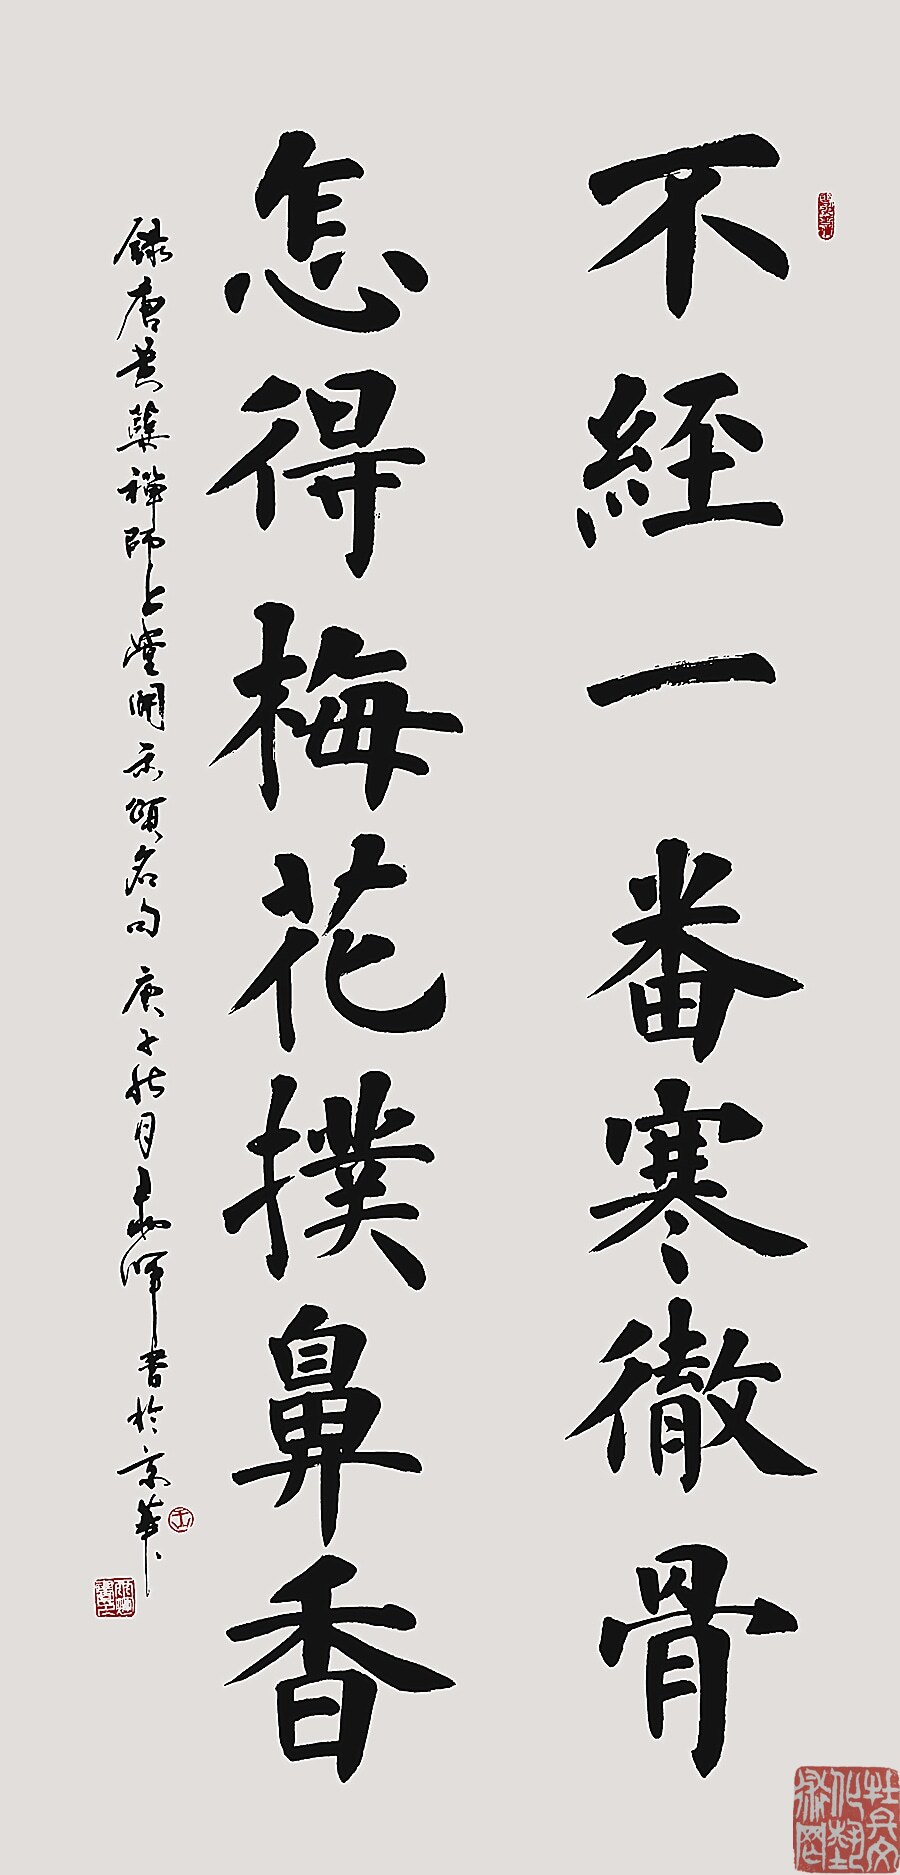 不經一番寒徹骨
怎得梅花撲鼻香
錄唐黃蘗禪師上堂開示頌名句 庚子秋月 書於京華